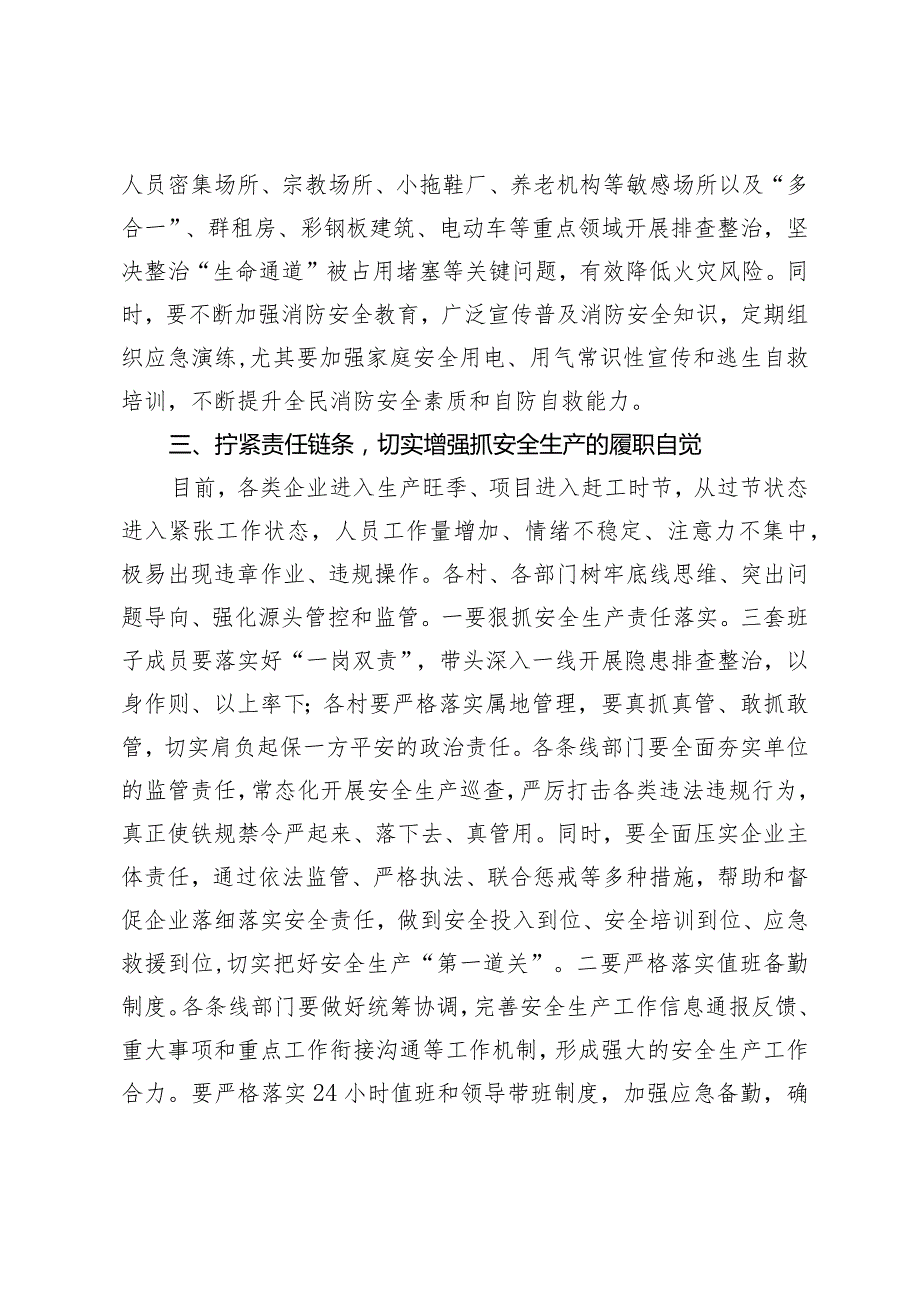 人员密集场所、宗教场所、小拖鞋厂、养老机构等敏感场所以及“多
合一”、群租房、彩钢板建筑、电动车等重点领域开展排查整治，坚
决整治“生命通道”被占用堵塞等关键问题，有效降低火灾风险。同
时，要不断加强消防安全教育，广泛宣传普及消防安全知识，定期组
织应急演练,尤其要加强家庭安全用电、用气常识性宣传和逃生自救
培训，不断提升全民消防安全素质和自防自救能力。
三、拧紧责任链条，切实增强抓安全生产的履职自觉
目前，各类企业进入生产旺季、项目进入赶工时节，从过节状态
进入紧张工作状态，人员工作量增加、情绪不稳定、注意力不集中，
极易出现违章作业、违规操作。各村、各部门树牢底线思维、突出问
题导向、强化源头管控和监管。一要狠抓安全生产责任落实。三套班
子成员要落实好“一岗双责”，带头深入一线开展隐患排查整治，以
身作则、以上率下；各村要严格落实属地管理，要真抓真管、敢抓敢
管，切实肩负起保一方平安的政治责任。各条线部门要全面夯实单位
的监管责任,常态化开展安全生产巡查,严厉打击各类违法违规行为，
真正使铁规禁令严起来、落下去、真管用。同时，要全面压实企业主
体责任，通过依法监管、严格执法、联合惩戒等多种措施，帮助和督
促企业落细落实安全责任，做到安全投入到位、安全培训到位、应急
救援到位,切实把好安全生产“第一道关”。二要严格落实值班备勤
制度。各条线部门要做好统筹协调,完善安全生产工作信息通报反馈、
重大事项和重点工作衔接沟通等工作机制,形成强大的安全生产工作
合力。要严格落实24小时值班和领导带班制度，加强应急备勤，确